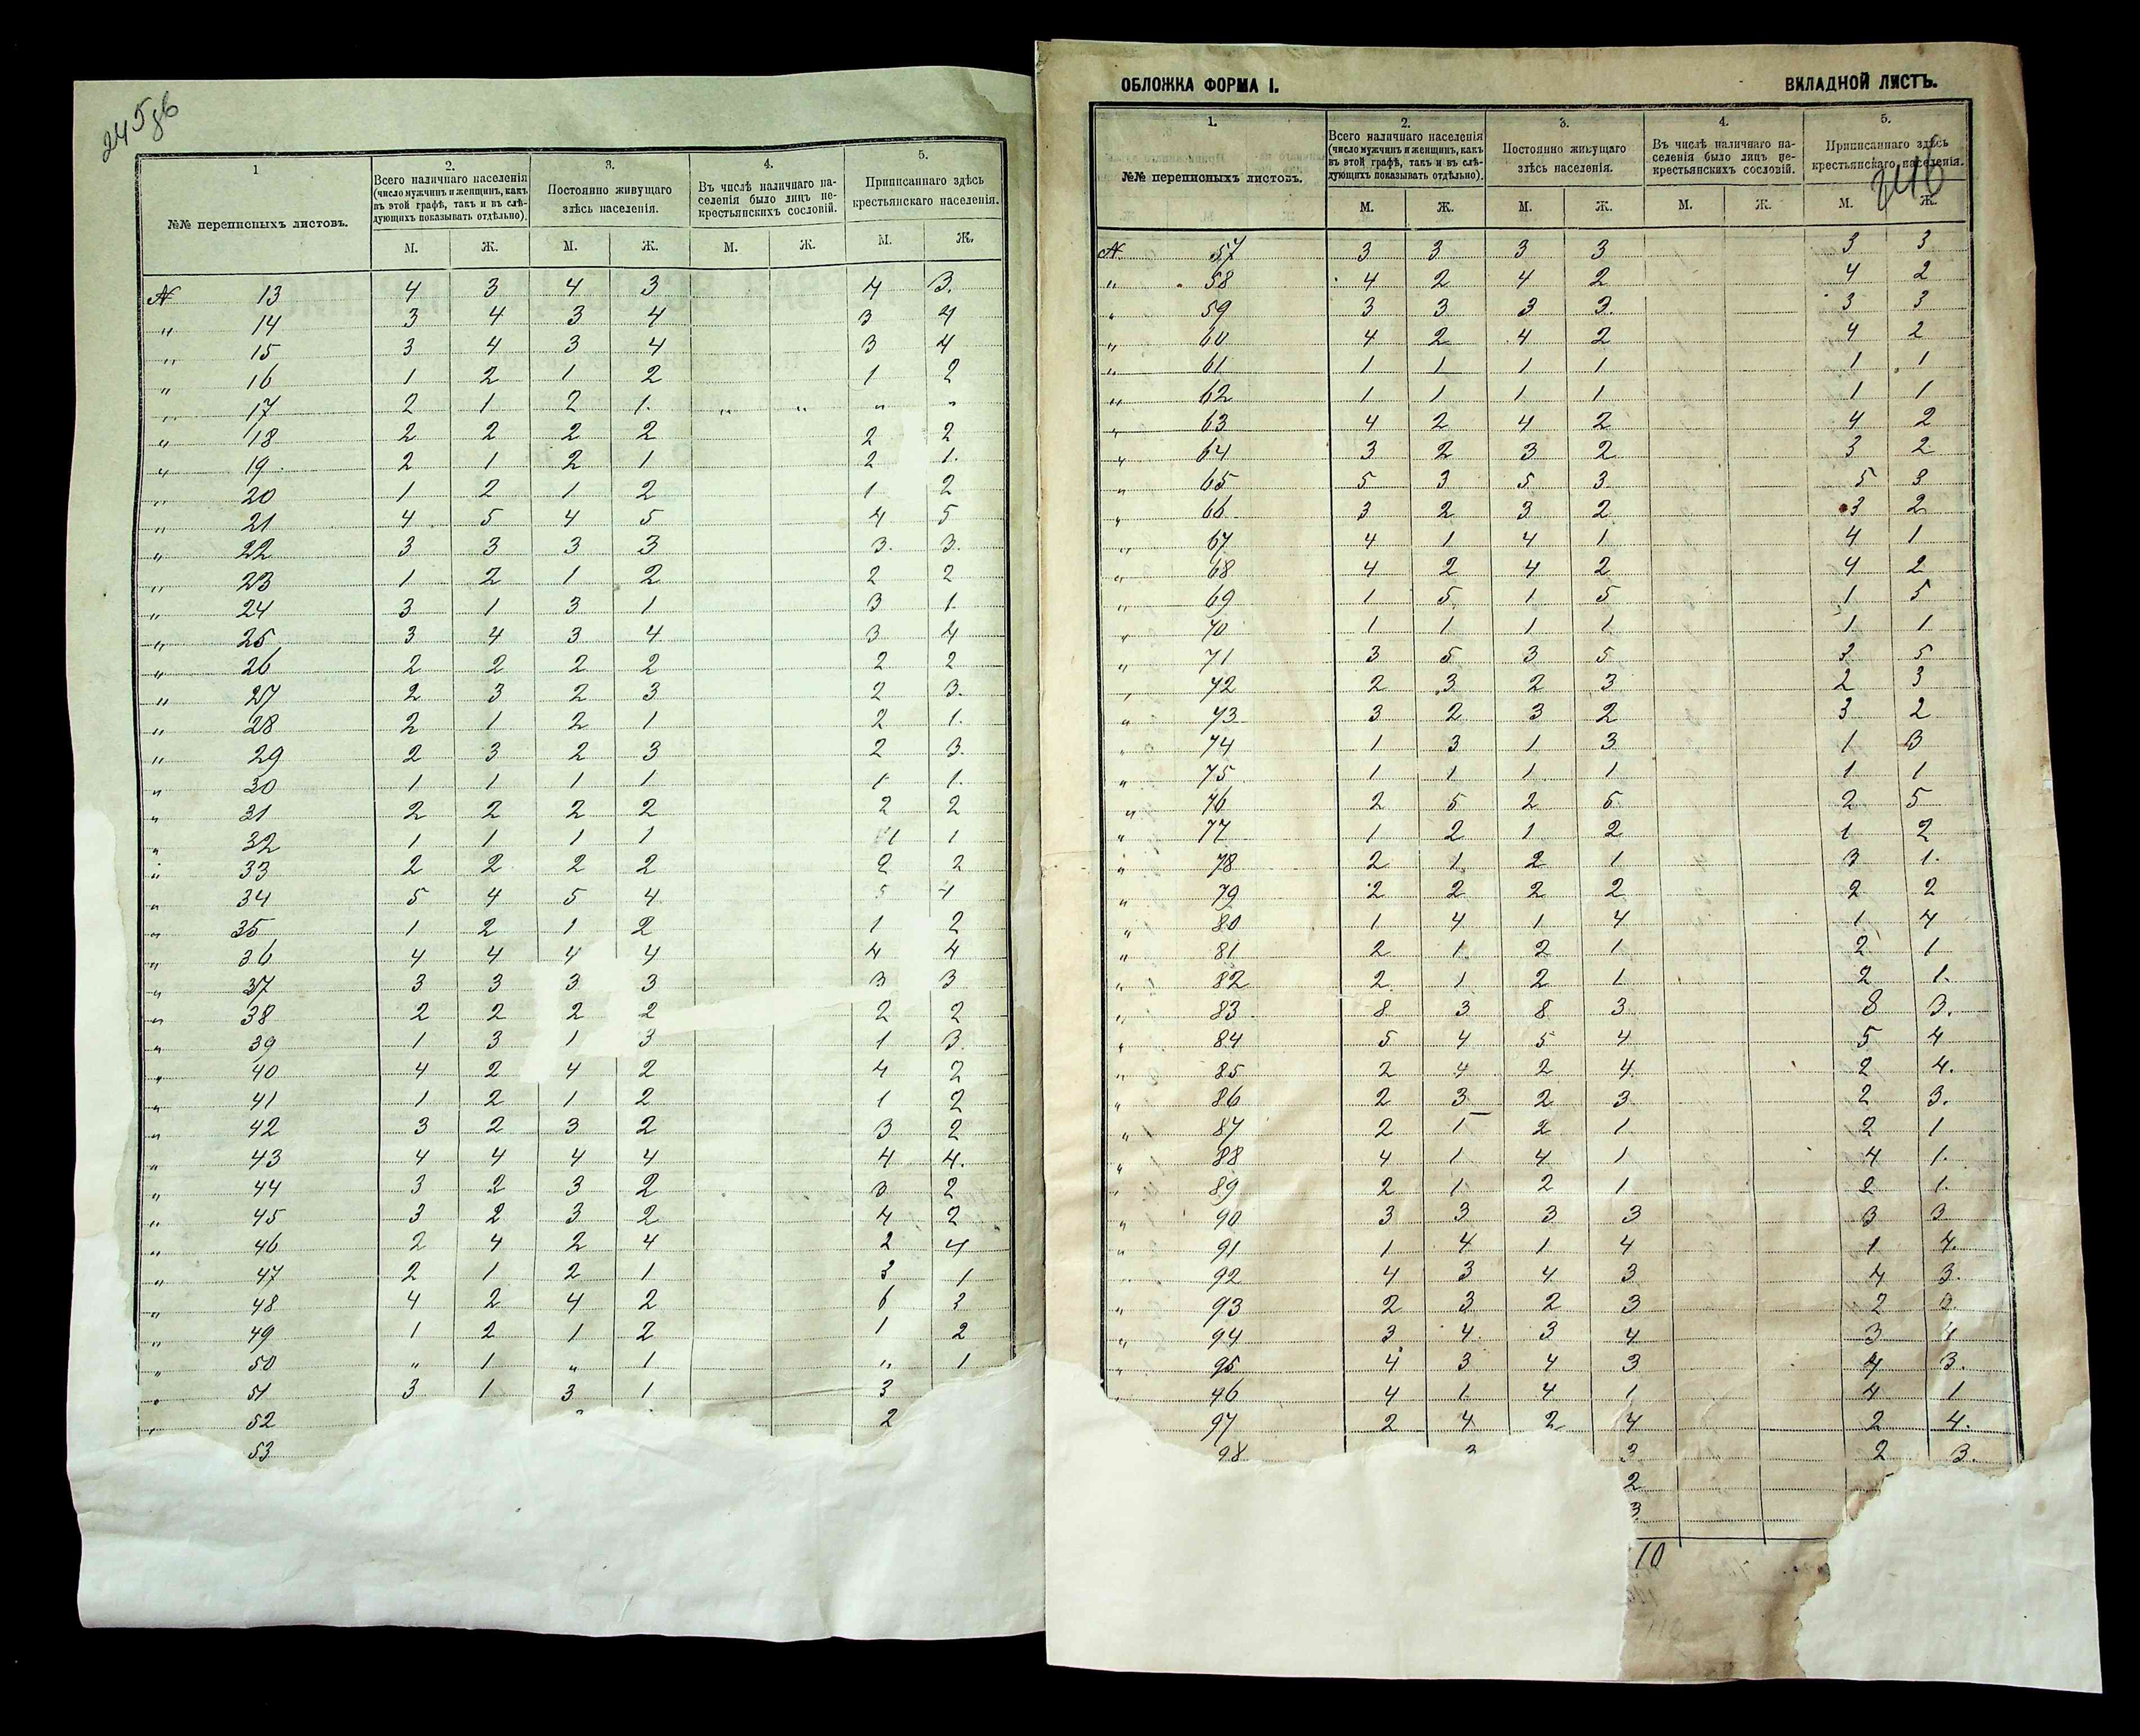 245об
1
2.
3.
4.
5.
№№ переписныхъ листовъ.
Всего наличнаго населенія
(число мужчинъ и женщинъ, какъ
въ этой графѣ, такъ и въ слѣ-
дующихъ показывать отдѣльно).
Постоянно живущаго
здѣсь населенія.
Въ числѣ наличнаго на-
селенія было лицъ не-
крестьянскихъ сословій.
Приписаннаго здѣсь
крестьянскаго населенія.
М. Ж. М. Ж. М. Ж. М. Ж.
№ 13 4 3 4 3 4 3.
" 14 3 4 3 4 3 4
" 15 3 4 3 4 3 4
" 16 1 2 1 2 1 2
" 17 2 1 2 1. " " " "
" 18 2 2 2 2 2 2
" 19 2 1 2 1 2 1.
" 20 1 2 1 2 1 2
" 21 4 5 4 5 4 5
" 22 3 3 3 3 3. 3.
" 23 1 2 1 2 2 2
" 24 3 1 3 1 3 1
" 25 3 4 3 4 3 4
" 26 2 2 2 2 2 2
" 27 2 3 2 3 2 3.
" 28 2 1 2 1 2 1.
" 29 2 3 2 3 2 3
" 30 1 1 1 1 1 1.
" 31 2 2 2 2 2 2
" 32 1 1 1 1 1 1
" 33 2 2 2 2 2 2
" 34 5 4 5 4 5 4
" 35 1 2 1 2 1 2
" 36 4 4 4 4 4 4
" 37 3 3 3 3 3 3
" 38 2 2 2 2 2 2
" 39 1 3 1 3 1 3
" 40 4 2 4 2 4 2
" 41 1 2 1 2 1 2
" 42 3 2 3 2 3 2
" 43 4 4 4 4 4 4.
" 44 3 2 3 2 3 2
" 45 3 2 3 2 4 2
" 46 2 4 2 4 2 4
" 47 2 1 2 1 3 1
" 48 4 2 4 2 6 3
" 49 1 2 1 2 1 2
" 50 " 1 " 1 " 1
" 51 3 1 3 1 3
" 52 2
53
ОБЛОЖКА ФОРМА I. ВКЛАДНОЙ ЛИСТЪ.
246
1.
2.
3.
4.
5.
№№ переписныхъ листовъ.
Всего наличнаго населенія
(число мужчинъ и женщинъ, какъ
въ этой графѣ, такъ и въ слѣ-
дующихъ показывать отдѣльно).
Постоянно живущаго
здѣсь населенія.
Въ числѣ наличнаго на-
селенія было лицъ не-
крестьянскихъ сословій.
Приписаннаго здѣсь
крестьянскаго населенія.
М. Ж. М. Ж. М. Ж. М. Ж.
№ 57 3 3 3 3 3 3
" 58 4 2 4 2 4 2
" 59 3 3 3 3. 3 3
" 60 4 2 4 2 4 2
" 61 1 1 1 1 1 1
" 62 1 1 1 1 1 1
" 63 4 2 4 2 4 2
" 64 3 2 3 2 3 2
" 65 5 3 5 3 5 3
" 66 3 2 3 2 3 2
" 67 4 1 4 1 4 1
" 68 4 2 4 2 4 2
" 69 1 5 1 5 1 5
" 70 1 1 1 1 1 1
" 71 3 5 3 5 3 5
" 72 2 3 2 3 2 3
" 73 3 2 3 2 3 2
" 74 1 3 1 3 1 3
" 75 1 1 1 1 1 1
" 76 2 5 2 5 2 5
" 77 1 2 1 2 1 2
" 78 2 1 2 1 3 1.
" 79 2 2 2 2 2 2
" 80 1 4 1 4 1 4
" 81 2 1 2 1 2 1
" 82 2 1 2 1 2 1.
" 83 8 3 8 3 8 3.
" 84 5 4 5 4 5 4
" 85 2 4 2 4 2 4.
" 86 2 3 2 3 2 3.
" 87 2 1 2 1 2 1
" 88 4 1 4 1 4 1.
" 89 2 1 2 1 2 1.
" 90 3 3 3 3 3 3
" 91 1 4 1 4 1 4.
" 92 4 3 4 3 4 3.
" 93 2 3 2 3 2 3.
" 94 3 4 3 4 3 4
" 95 4 3 4 3 4 3.
" 96 4 1 4 1 4 1
97 2 4 2 4 2 4.
98 3 3 2 3.
2
3.
10